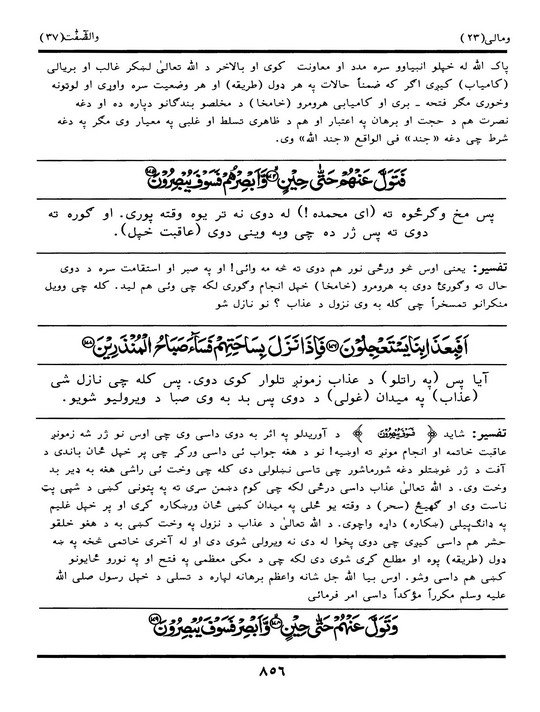 ومالی(۲۳) والصّٰفّٰت(۳۷)
پاک الله له خپلو انبیاوو سره مدد او معاونت کوی او بالاخر د الله تعالیٰ لښکر غالب او بریالی
(کامیاب) کیږی اگر که ضمناً حالات په هر ډول (طریقه) او هر وضعیت سره واوړی او لوټونه
وخوری مگر فتحه ـ بری او کامیابی هرومرو (خامخا) د مخلصو بندگانو دپاره ده او دغه
نصرت هم د حجت او برهان په اعتبار او هم د ظاهری تسلط او غلبی په معیار وی مگر په دغه
شرط چی دغه «جند» فی الواقع «جند الله» وی.
فَتَوَلَّ عَنْهُمْ حَتّٰى حِيْنٍ۝۱۷۴ وَّاَبْصِرْهُمْ فَسَوْفَ يُبْصِرُوْنَ۝۱۷۵
پس مخ وگرځوه ته (ای محمده!) له دوی نه تر یوه وقته پوری. او گوره ته
دوی ته پس ژر ده چی وبه وینی دوی (عاقبت خپل).
تفسیر: یعنی اوس خو ورځی نور هم دوی ته څه مه وائی! او په صبر او استقامت سره د دوی
حال ته وگورئ دوی به هرومرو (خامخا) خپل انجام وگوری لکه چی وئی هم لید. کله چی وویل
منکرانو تمسخراً چی کله به وی نزول د عذاب ؟ نو نازل شو
اَفَبِعَذَابِنَا يَسْتَعْجِلُوْنَ۝۱۷۶ فَاِذَا نَزَلَ بِسَاحَتِهِمْ فَسَآءَ صَبَاحُ الْمُنْذَرِيْنَ۝۱۷۷
آیا پس (په راتلو) د عذاب زمونږ تلوار کوی دوی. پس کله چی نازل شی
(عذاب) په میدان (غولی) د دوی پس بد به وی صبا د ویرولیو شویو.
تفسیر: شاید ﴿ فَسَوْفَ يُبْصِرُوْنَ ﴾ د آوریدلو په اثر به دوی داسی وی چی اوس نو ژر شه زمونږ
عاقبت خاتمه او انجام مونږ ته اوښیه! نو د هغه جواب ئی داسی ورکړ چی پر خپل ځان باندی د
آفت د ژر غوښتلو دغه شورماشور چی تاسی نښلولی دی کله چی وخت ئی راشی هغه به ډیر بد
وخت وی. د الله تعالیٰ عذاب داسی درځی لکه چی کوم دښمن سری ته په پتونی کښی د شپی پټ
ناست وی او گهیځ (سحر) د وقته یو ځلی په میدان کښی ځان ورښکاره کړی او پر خپل غلیم
په ډانګپیلی (ښکاره) داړه واچوی. د الله تعالیٰ د عذاب د نزول په وخت کښی به د هغو خلقو
حشر هم داسی کیږی چی دوی پخوا له دی نه ویرولی شوی دی او له آخری خاتمی څخه په ښه
ډول (طریقه) پوه او مطلع کړی شوی دی لکه چی د مکی معظمی په فتح او په نورو ځایونو
کښی هم داسی وشو. اوس بیا الله جل شانه واعظم برهانه لپاره د تسلی د خپل رسول صلی الله
علیه وسلم مکرراً مؤکداً داسی امر فرمائی
وَتَوَلَّ عَنْهُمْ حَتّٰى حِيْنٍ۝۱۷۸ وَّاَبْصِرْ فَسَوْفَ يُبْصِرُوْنَ۝۱۷۹
۸۵۶